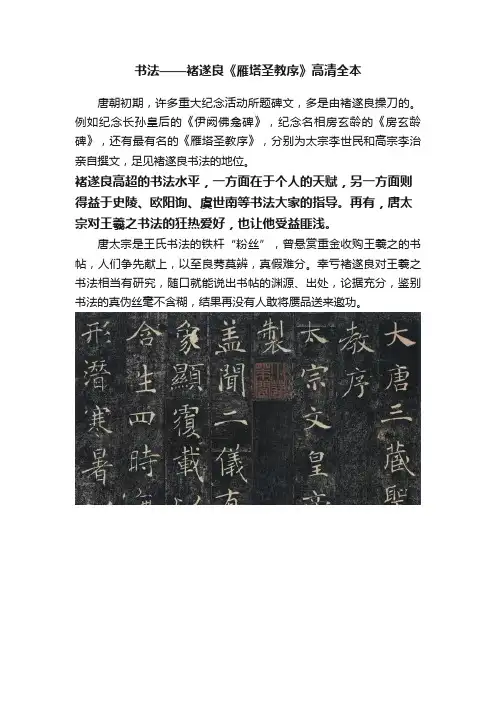 书法——褚遂良《雁塔圣教序》高清全本
唐朝初期，许多重大纪念活动所题碑文，多是由褚遂良操刀的。
例如纪念长孙皇后的《伊阙佛龛碑》，纪念名相房玄龄的《房玄龄
碑》，还有最有名的《雁塔圣教序》，分别为太宗李世民和高宗李治
亲自撰文，足见褚遂良书法的地位。
褚遂良高超的书法水平，一方面在于个人的天赋，另一方面则
得益于史陵、欧阳询、虞世南等书法大家的指导。再有，唐太
宗对王羲之书法的狂热爱好，也让他受益匪浅。
唐太宗是王氏书法的铁杆“粉丝”，曾悬赏重金收购王羲之的书
帖，人们争先献上，以至良莠莫辨，真假难分。幸亏褚遂良对王羲之
书法相当有研究，随口就能说出书帖的渊源、出处，论据充分，鉴别
书法的真伪丝毫不含糊，结果再没有人敢将赝品送来邀功。
大唐三藏聖
教序
太宗文皇帝
製
盖聞二儀有
象顯覆載以
含生四時無
形潜寒暑